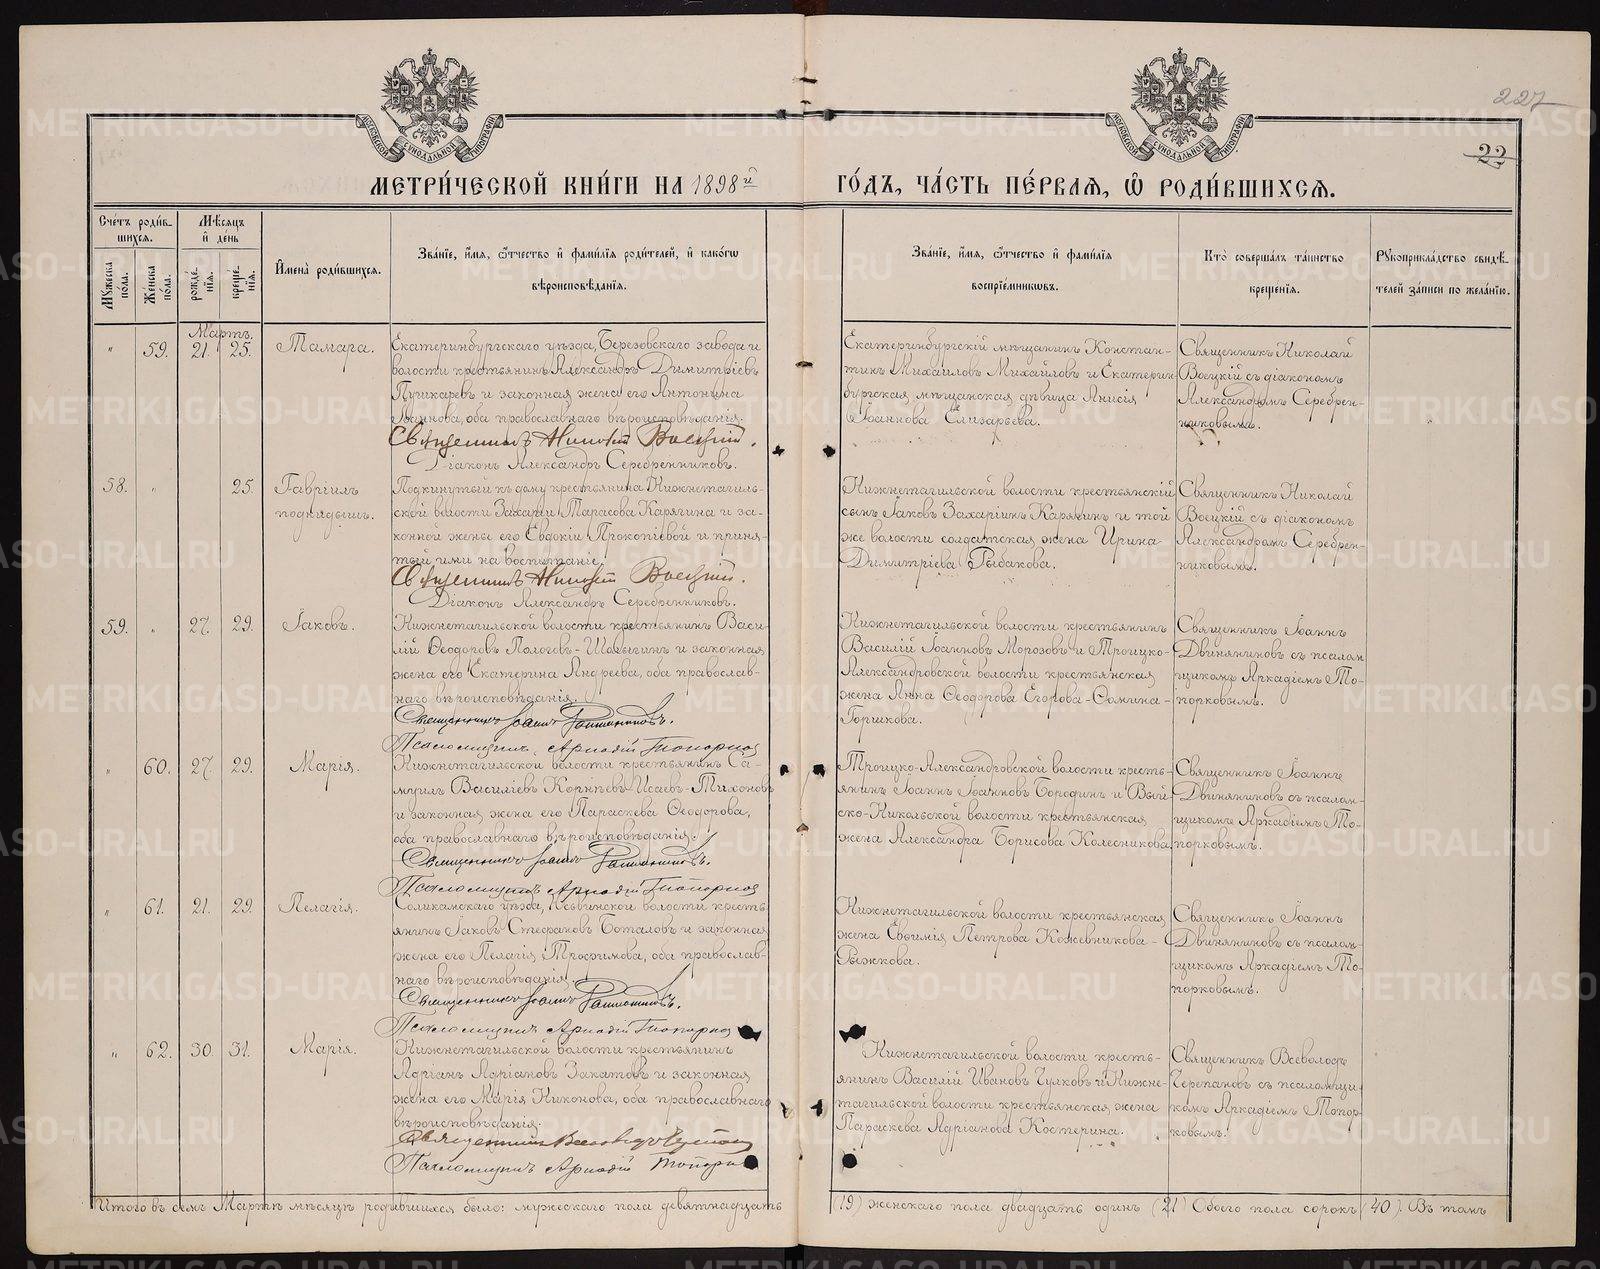 227
22
МОСКОВСКОЙ СУНОДАЛЬНОЙ ТИПОГРАФІИ
МОСКОВСКОЙ СУНОДАЛЬНОЙ ТИПОГРАФІИ
МЕТРИ́ЧЕСКОЙ КНИ́ГИ НА 1898й
ГО́ДЪ, ЧА́СТЬ ПЕ́РВАѦ, Ѿ РОДИ́ВШИХСѦ.
Сче́тъ роди́в-
шихсѧ.
Мꙋжеска по́ла.
Же́нска по́ла.
Мѣ́сѧцъ
и҆ де́нь
рожде́-
нїѧ.
креще́-
нїѧ.
И҆мена̀ роди́вшихсѧ.
Зва́нїе, и҆́мѧ, ѻ҆́тчество и҆ фами́лїѧ роди́телей, и҆ како́гѡ
вѣроисповѣ́данїѧ.
Зва́нїе, и҆́мѧ, ѻ҆́тчество и҆ фами́лїѧ
воспрїе́мникѡвъ.
Кто̀ соверша́лъ та́инство
креще́нїѧ.
Рꙋкоприкла́дство свидѣ́-
телей за́писи по жела́нїю.
Мартъ.
" 59. 21. 25. Тамара.
Екатеринбургскаго уѣзда, Березовскаго завода и
волости крестьянинъ Александръ Димитріевъ
Пушкаревъ и законная жена его Антонина
Іоаннова, оба православнаго вѣроисповѣданія.
Священникъ Николай Воецкій.
Діаконъ Александръ Серебренниковъ.
Екатеринбургскій мѣщанинъ Констан-
тинъ Михайловъ Михайловъ и Екатерин-
бургская мѣщанская дѣвица Анисія
Іоаннова Елизарьева.
Священникъ Николай
Воецкій съ діакономъ
Александромъ Серебрен-
никовымъ.
58. " 25. Гавріилъ
подкидышъ.
Подкинутый къ дому крестьянина Нижнетагиль-
ской волости Захаріи Тарасова Карягина и за-
конной жены его Евдокіи Прокопіевой и приня-
тый ими на воспитаніе.
Священникъ Николай Воецкій.
Діаконъ Александръ Серебренниковъ.
Нижнетагильской волости крестьянскій
сынъ Іаковъ Захаріинъ Карягинъ и той
же волости солдатская жена Ирина
Димитріева Рыбакова.
Священникъ Николай
Воецкій съ діакономъ
Александромъ Серебрен-
никовымъ.
59. " 27. 29. Іаковъ.
Нижнетагильской волости крестьянинъ Васи-
лій Ѳеодоровъ Пологовъ- и законная
жена его Екатерина Андреева, оба православ-
наго вѣроисповѣданія.
Священникъ Іоаннъ Двиняниновъ.
Псаломщикъ Аркадій Топорков
Нижнетагильской волости крестьянинъ
Василій Іоанновъ Морозовъ и Троицко-
Александровской волости крестьянская
жена Анна Ѳеодорова Егорова-Сомина-
Горшкова.
Священникъ Іоаннъ
Двиняниновъ съ псалом
щикомъ Аркадіемъ То-
порковымъ.
" 60. 27. 29. Марія.
Нижнетагильской волости крестьянинъ Са-
муилъ Василіевъ Корнѣевъ Исаевъ-Тихоновъ
и законная жена его Параскева Ѳеодорова,
оба православнаго вѣроисповѣданія.
Священникъ Іоаннъ Двиняниновъ.
Псаломщикъ Аркадій Топорков
Троицко-Александровской волости кресть-
янинъ Іоаннъ Іоанновъ Бородинъ и Вый-
ско-Никольской волости крестьянская
жена Александра Борисова Колесникова
Священникъ Іоаннъ
Двиняниновъ съ псалом-
щикомъ Аркадіемъ То-
порковымъ.
" 61. 21. 29. Пелагія.
Соликамскаго уѣзда, волости кресть-
янинъ Іаковъ Стефановъ Боталовъ и законная
жена его Пелагія Трофимова, оба православ-
наго вѣроисповѣданія.
Священникъ Іоаннъ Двиняниновъ.
Псаломщикъ Аркадій Топорков
Нижнетагильской волости крестьянская
жена Евѳимія Петрова Кожевникова-
Рыжкова.
Священникъ Іоаннъ
Двиняниновъ съ псалом-
щикомъ Аркадіемъ То-
порковымъ.
" 62. 30. 31. Марія.
Нижнетагильской волости крестьянинъ
Адріанъ Адріановъ Закатовъ и законная
жена его Марія Никонова, оба православнаго
вѣроисповѣданія.
Священникъ Всеволодъ Черепанов
Псаломщикъ Аркадій Топорко
Нижнетагильской волости кресть-
янинъ Василій Ивановъ Чулковъ и Нижне-
тагильской волости крестьянская жена
Параскева Адріанова Костерина.
Священникъ Всеволодъ
Черепановъ съ псаломщи
комъ Аркадіемъ Топор-
ковымъ.
Итого въ семъ Мартѣ мѣсяцѣ родившихся было: мужескаго пола девятнадцать
(19) женскаго пола двадцать одинъ (21) Обоего пола сорокъ (40). Въ томъ
METRIKI.GASO-URAL.RU